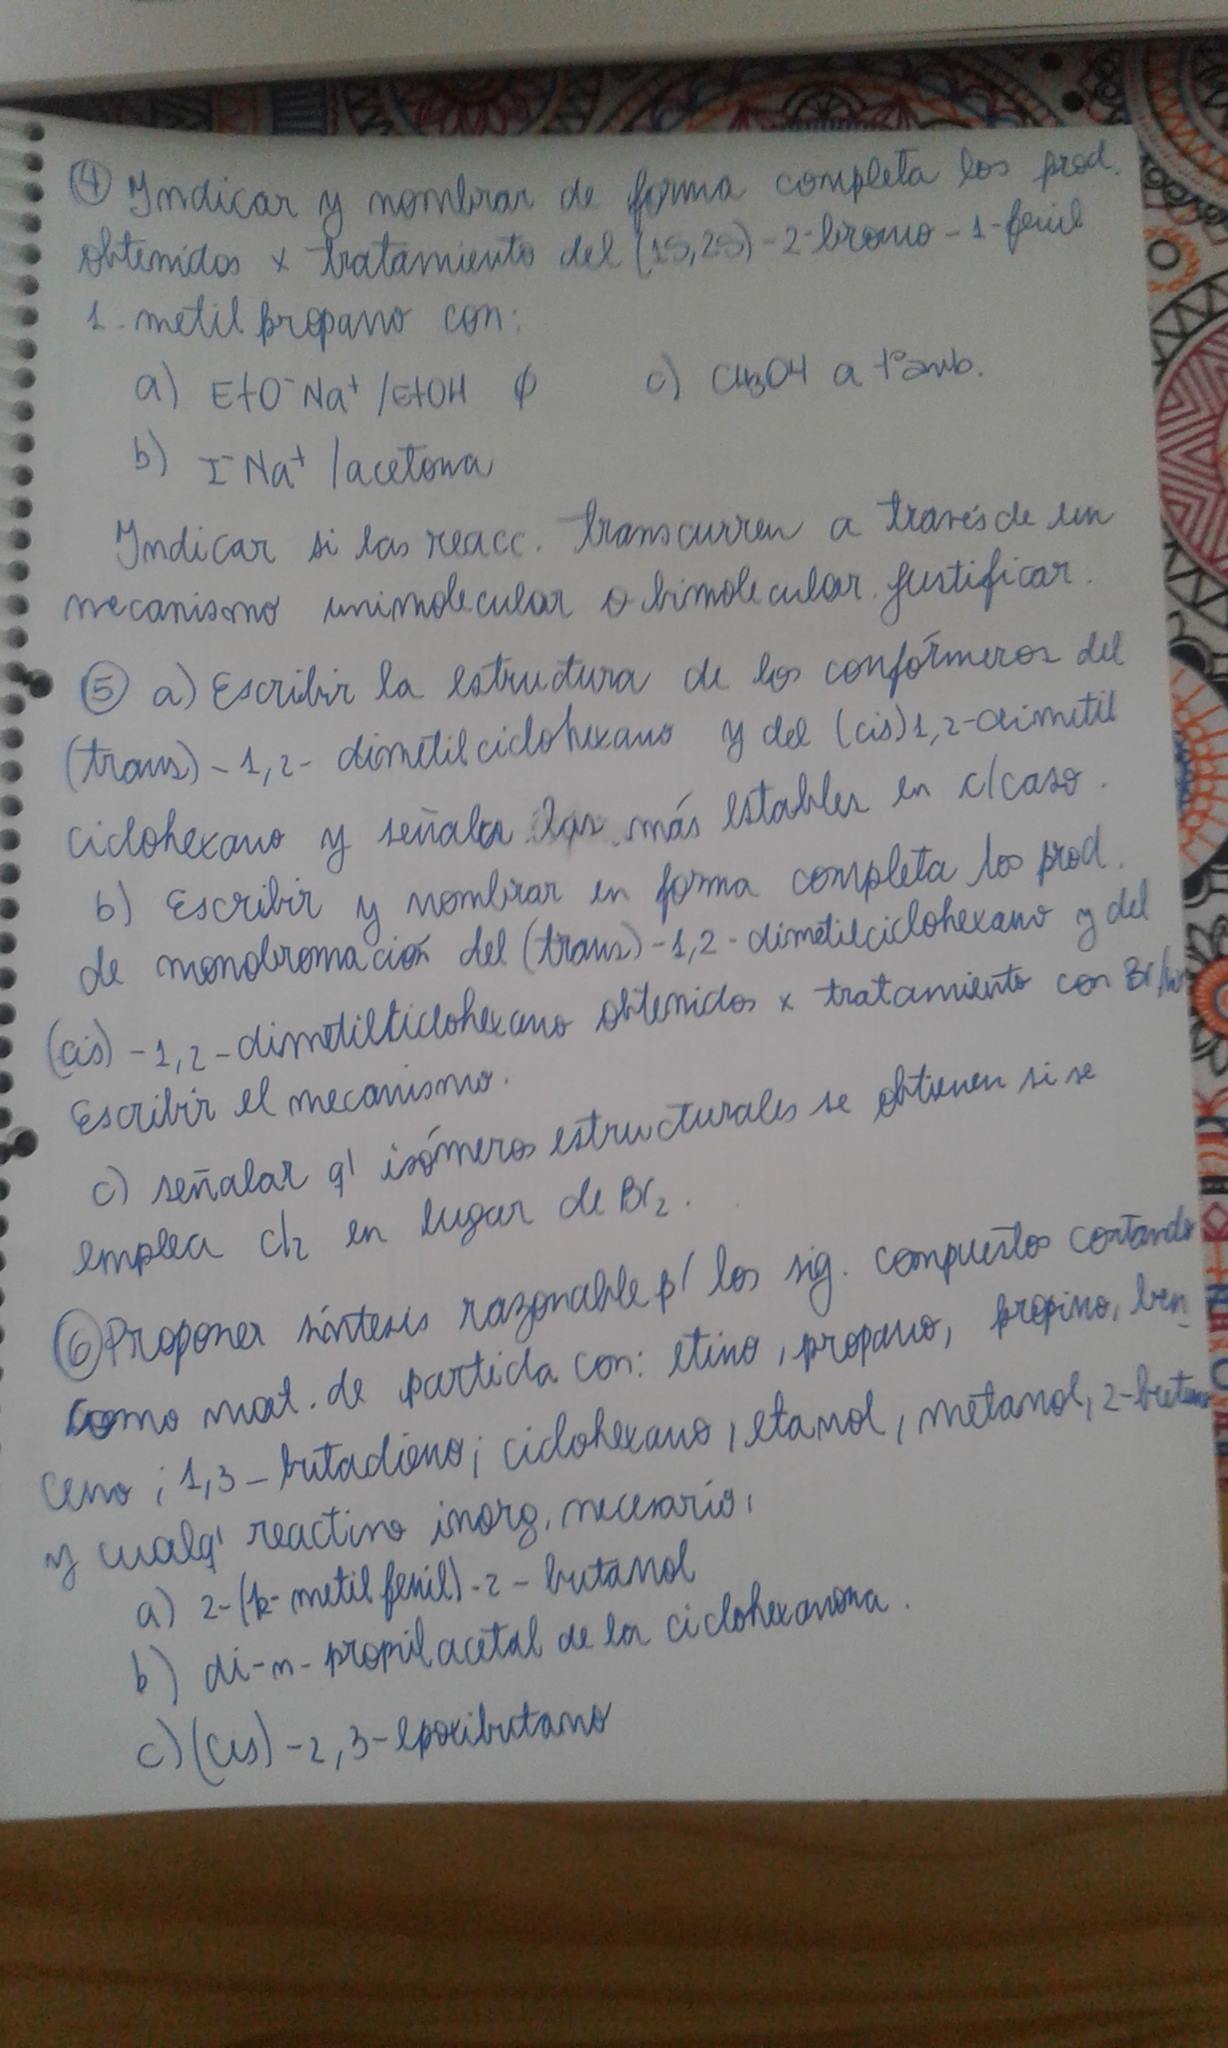 ④ Indicar y nombrar de forma completa los prod.
obtenidos x tratamiento del (1S,2S)-2-bromo-1-fenil
1-metil propano con:
a) EtO⁻Na⁺/EtOH ϕ c) CH₃OH a t°amb.
b) I⁻Na⁺/acetona
Indicar si las reacc. transcurren a través de un
mecanismo unimolecular o bimolecular. Justificar.
⑤ a) Escribir la estructura de los confórmeros del
(trans)-1,2-dimetilciclohexano y del (cis)1,2-dimetil
ciclohexano y señalar las más estables en c/caso.
b) Escribir y nombrar en forma completa los prod.
de monobromación del (trans)-1,2-dimetilciclohexano y del
(cis)-1,2-dimetilciclohexano obtenidos x tratamiento con Br/hν
Escribir el mecanismo.
c) señalar q' isómeros estructurales se obtienen si se
emplea Cl₂ en lugar de Br₂.
⑥ Proponer síntesis razonable p/ los sig. compuestos contando
como mat. de partida con: etino, propano, propino, ben
ceno; 1,3-butadieno; ciclohexano, etanol, metanol, 2-buteno
y cualq' reactivo inorg. necesario,
a) 2-(p-metilfenil)-2-butanol
b) di-n-propilacetal de la ciclohexanona.
c) (cis)-2,3-epoxibutano